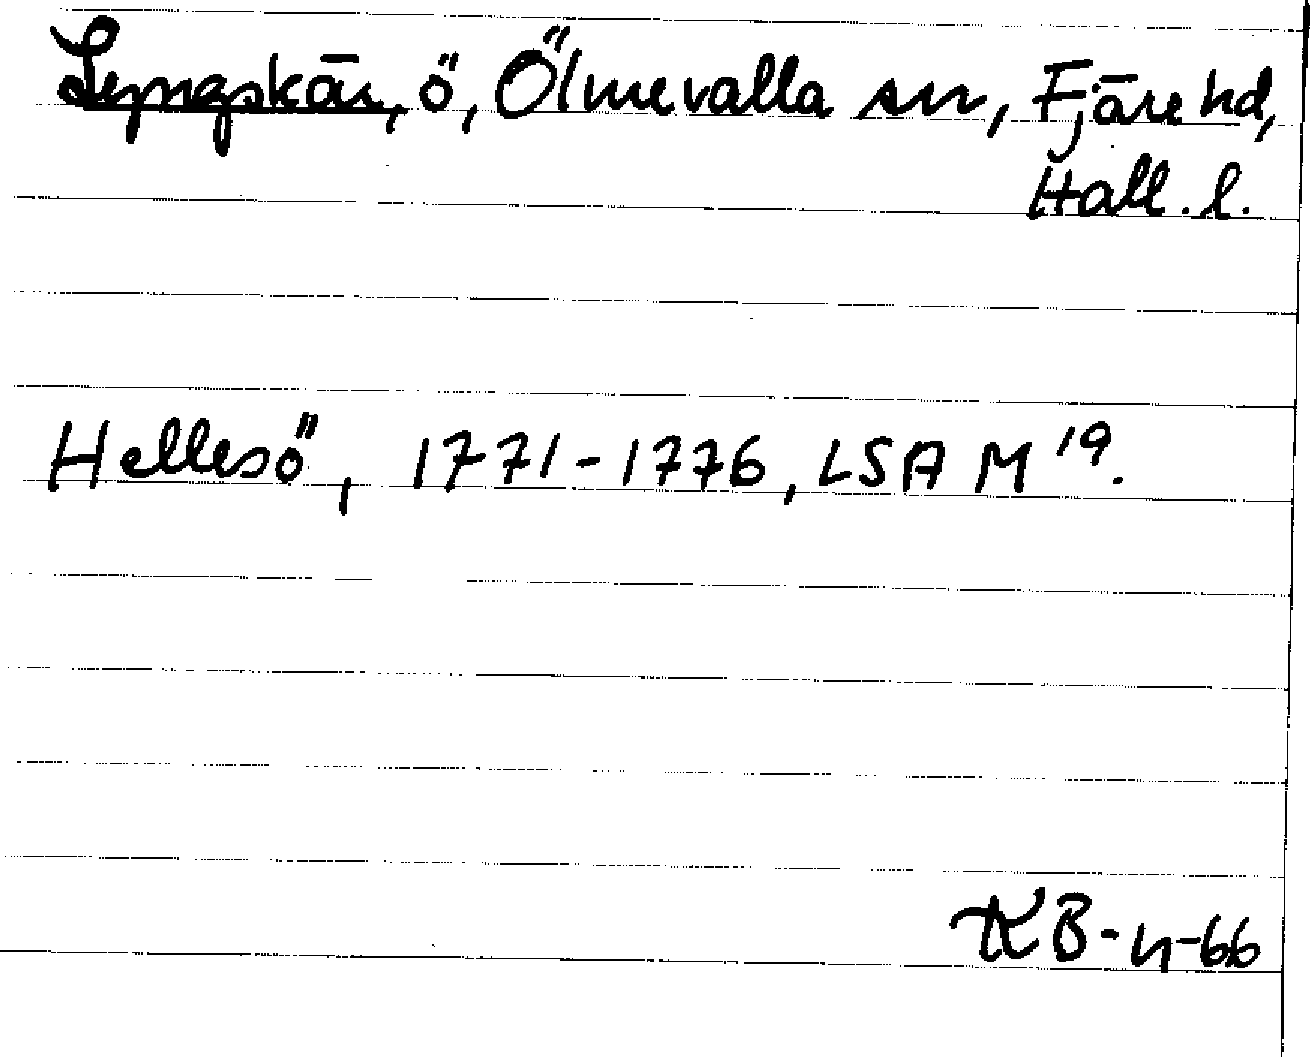 Lyngskär, ö, Ölmevalla sn, Fjäre hd,
Hall. l.
Hellesö, 1771-1776, LSA M 19.
KB-n-66